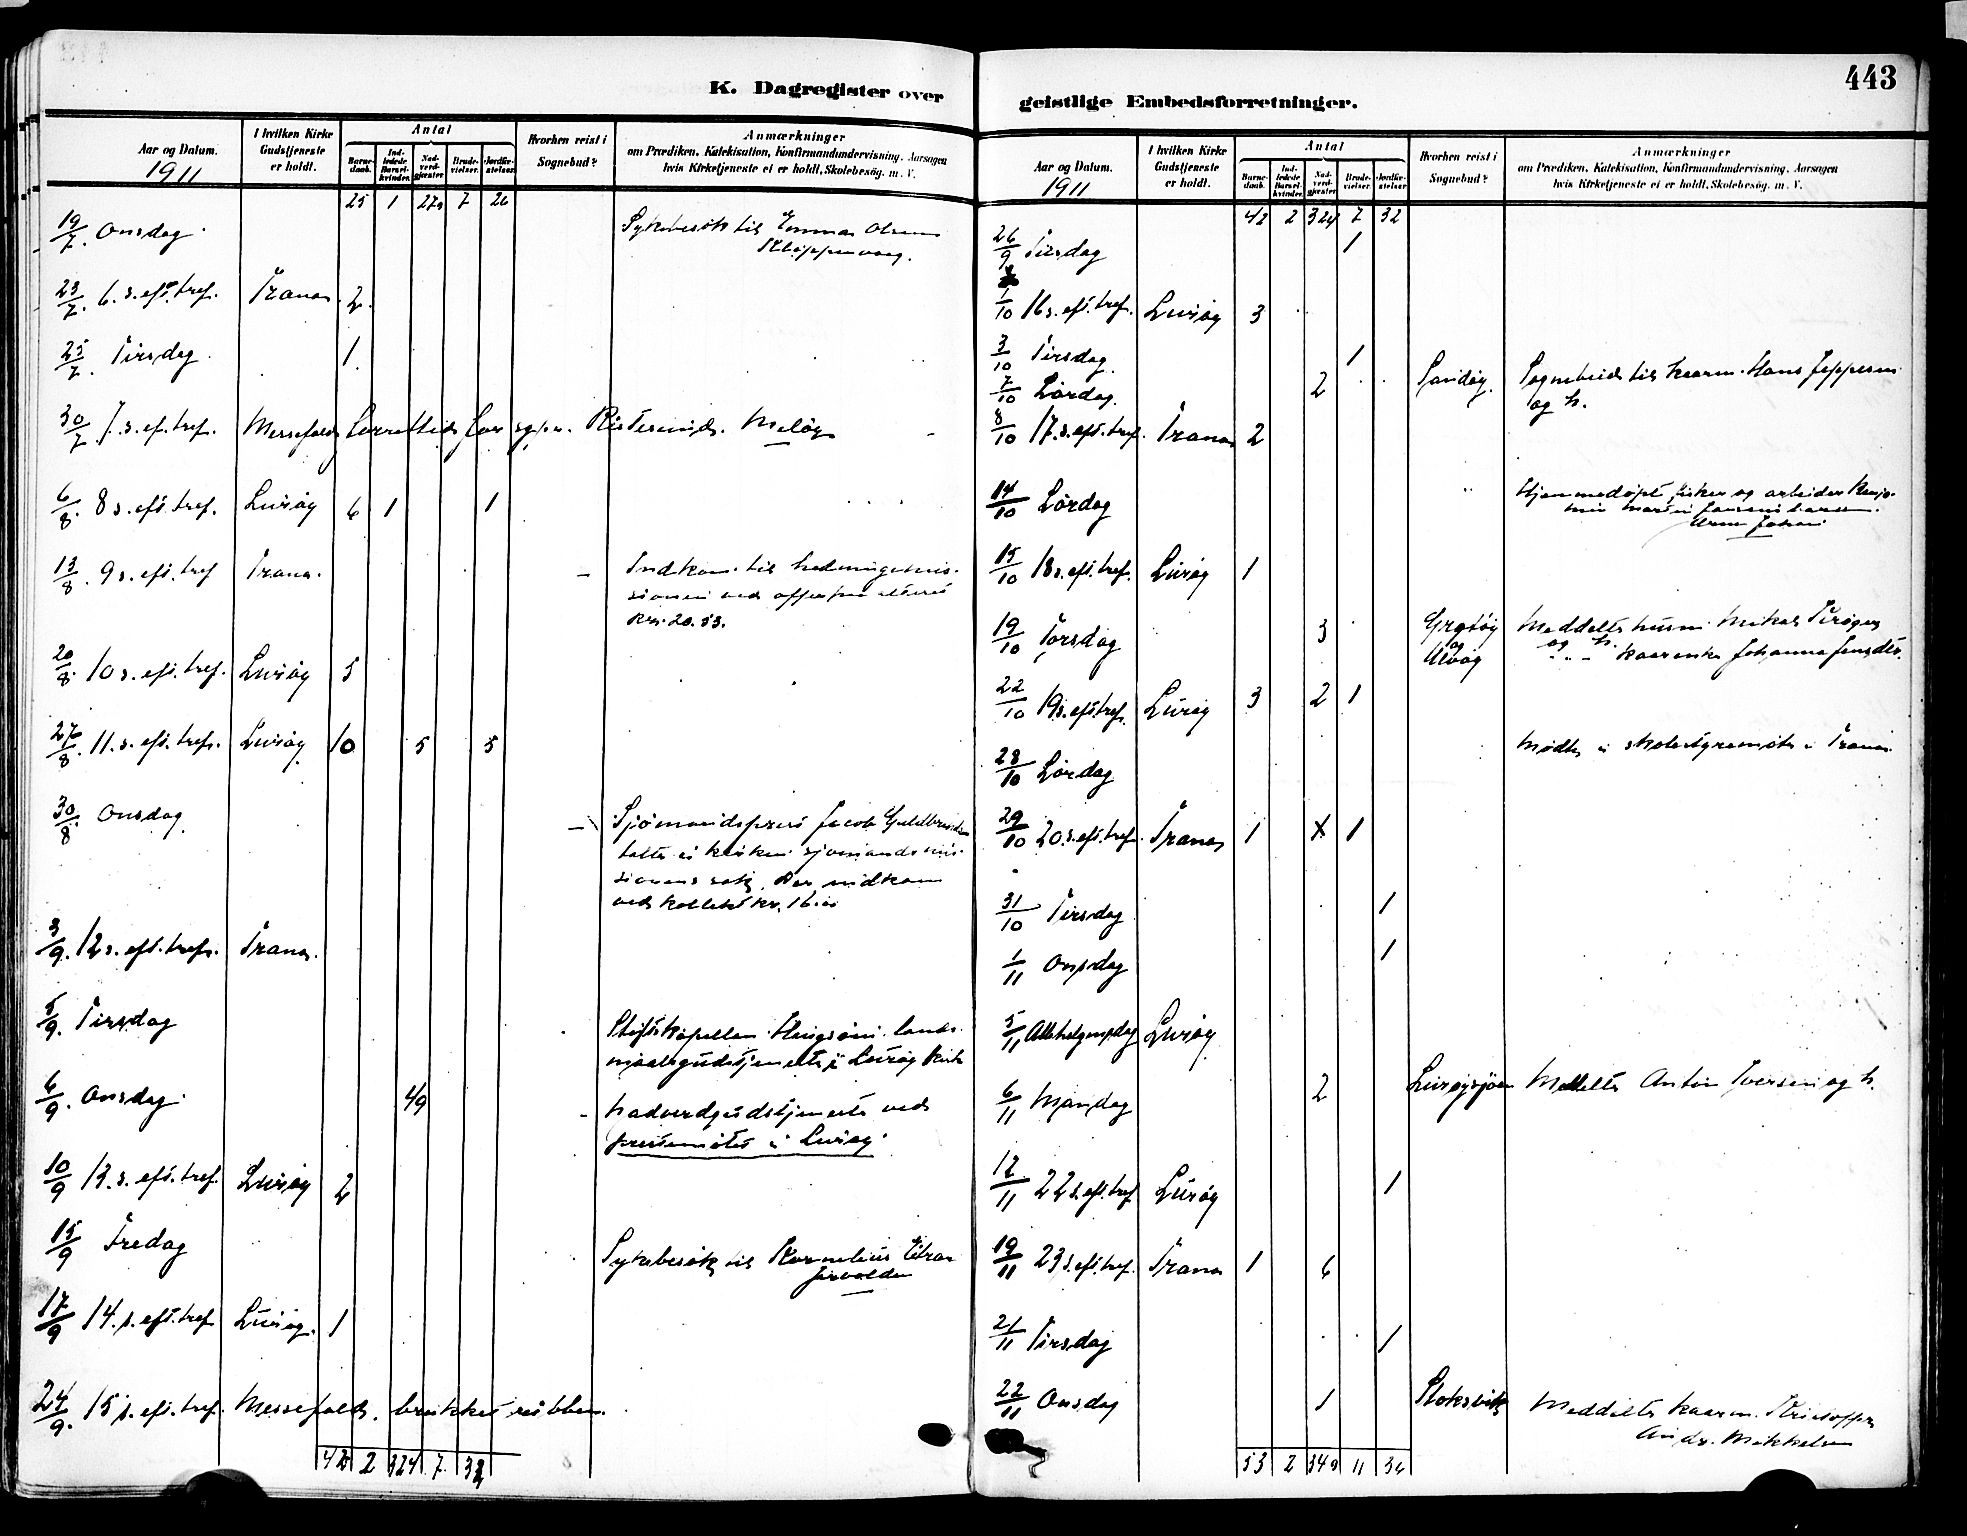 K. Dagregister over
Aar og Datum.
1911
I hvilken Kirke Gudstjeneste er holdt.
Antal
Barnedaab. Indledede Barselkvinder. Nadverdgjester Brudevielser. Jordfæstelser
Hvorhen reist i Sognebud?
Anmærkninger
om Prædiken, Katekisation, Konfirmandundervisning, Aarsagen
hvis Kirketjeneste ei er holdt, Skolebesøg. m. V.
25 1 270 7 26
19/7. Onsdag. Sykebesøk til Emma Olsen
23/7. 6. s. eft. tref. Træna. 2.
25/7. Tirsdag. 1.
30/7 7. s. ef. tref. Messefald
6/8. 8 s. eft. tref. Lurøy 6 1 1
13/8. 9 s. eft. tref Træna. Indkom til hedningemis-
sionen ved
kr. 20.53.
20/8. 10 s. eft. tref. Lurøy 5
27/8. 11. s. eft. tref. Lurøy 10 5 5
30/8. Onsdag. Sjømandsprest Jacob
talte i kirken sjømandsmis-
sionens sak. Der indkom
ved kollekt kr. 16.
3/9. 12 s. eft. tref. Træna.
5/9. Tirsdag Stiftskapellan lands-
maalsgudstjeneste i Lurøy kirke
6/9. Onsdag. 49 Nadverdgudstjeneste ved
prestemøtet i Lurøy.
10/9 13. s. eft. tref. Lurøy 2
15/9 Fredag Sykebesøk til Kornelius
17/9 14. s. eft. tref Lurøy. 1
24/9. 15 s. eft. tref. Messefald. brukket ribben.
42 2 324 7. 32
443
geistlige Embedsforretninger.
Aar og Datum.
1911
I hvilken Kirke Gudstjeneste er holdt.
Antal
Barnedaab. Indledede Barselkvinder. Nadverdgjester Brudevielser. Jordfæstelser
Hvorhen reist i Sognebud?
Anmærkninger
om Prædiken, Katekisation, Konfirmandundervisning, Aarsagen
hvis Kirketjeneste ei er holdt, Skolebesøg. m. V.
42 2 324 7 32
26/9 Tirsdag 1
1/10 16 s. eft. tref. Lurøy 3
3/10 Tirsdag. 1
7/10 Lørdag. 2 Sandøy. Sognebud til kaarm. Hans Jeppesen
og h.
8/10 17. s. eft. tref. Træna 2
14/10 Lørdag Hjemmedøpt fisker og arbeider
15/10 18 s. eft. tref. Lurøy 1
19/10 Torsdag 3 og Meddelte husm.
og h. kaarenke Johanna Jensdtr.
22/10 19 s. eft. tref. Lurøy 3 2 1
28/10 Lørdag Mødte i skolestyremøte i Træna
29/10 20. s. eft. tref. Træna 1 X 1
31/10 Tirsdag 1
1/11 Onsdag 1
5/11 Allehelgensdag Lurøy
6/11 Mandag 2 Lurøysjøen Meddelte Anton Iversen og h.
12/11 22 s. eft. tref Lurøy 1
19/11 23 s. eft. tref. Træna 1 6
21/11 Tirsdag 1
22/11 Onsdag 1 Stoksvik Meddelte kaarm. Kristoffer
Andr. Mikkelsen
53 2 349 11 36